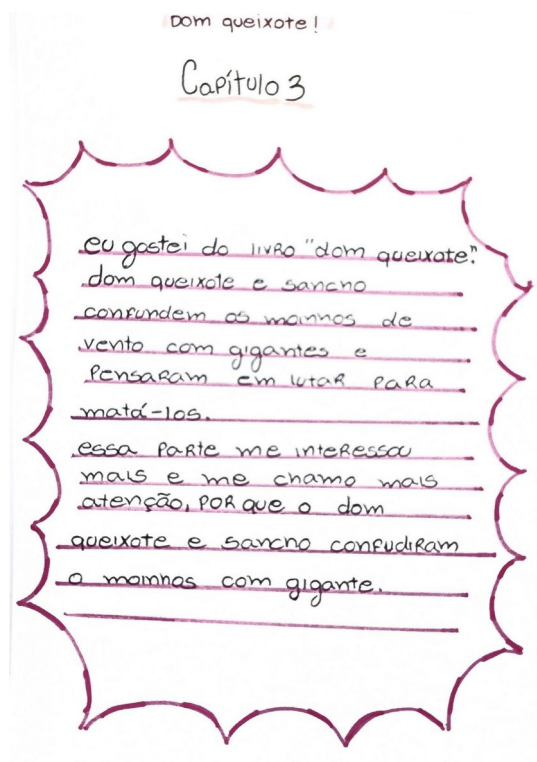 Dom queixote!
Capítulo 3
eu gostei do livro "dom queixote".
dom queixote e sancho
confundem os moinhos de
vento com gigantes e
Pensaram em lutar para
matá-los.
essa parte me interessou
mais e me chamo mais
atenção, por que o dom
queixote e sancho confudiram
o moinhos com gigante.